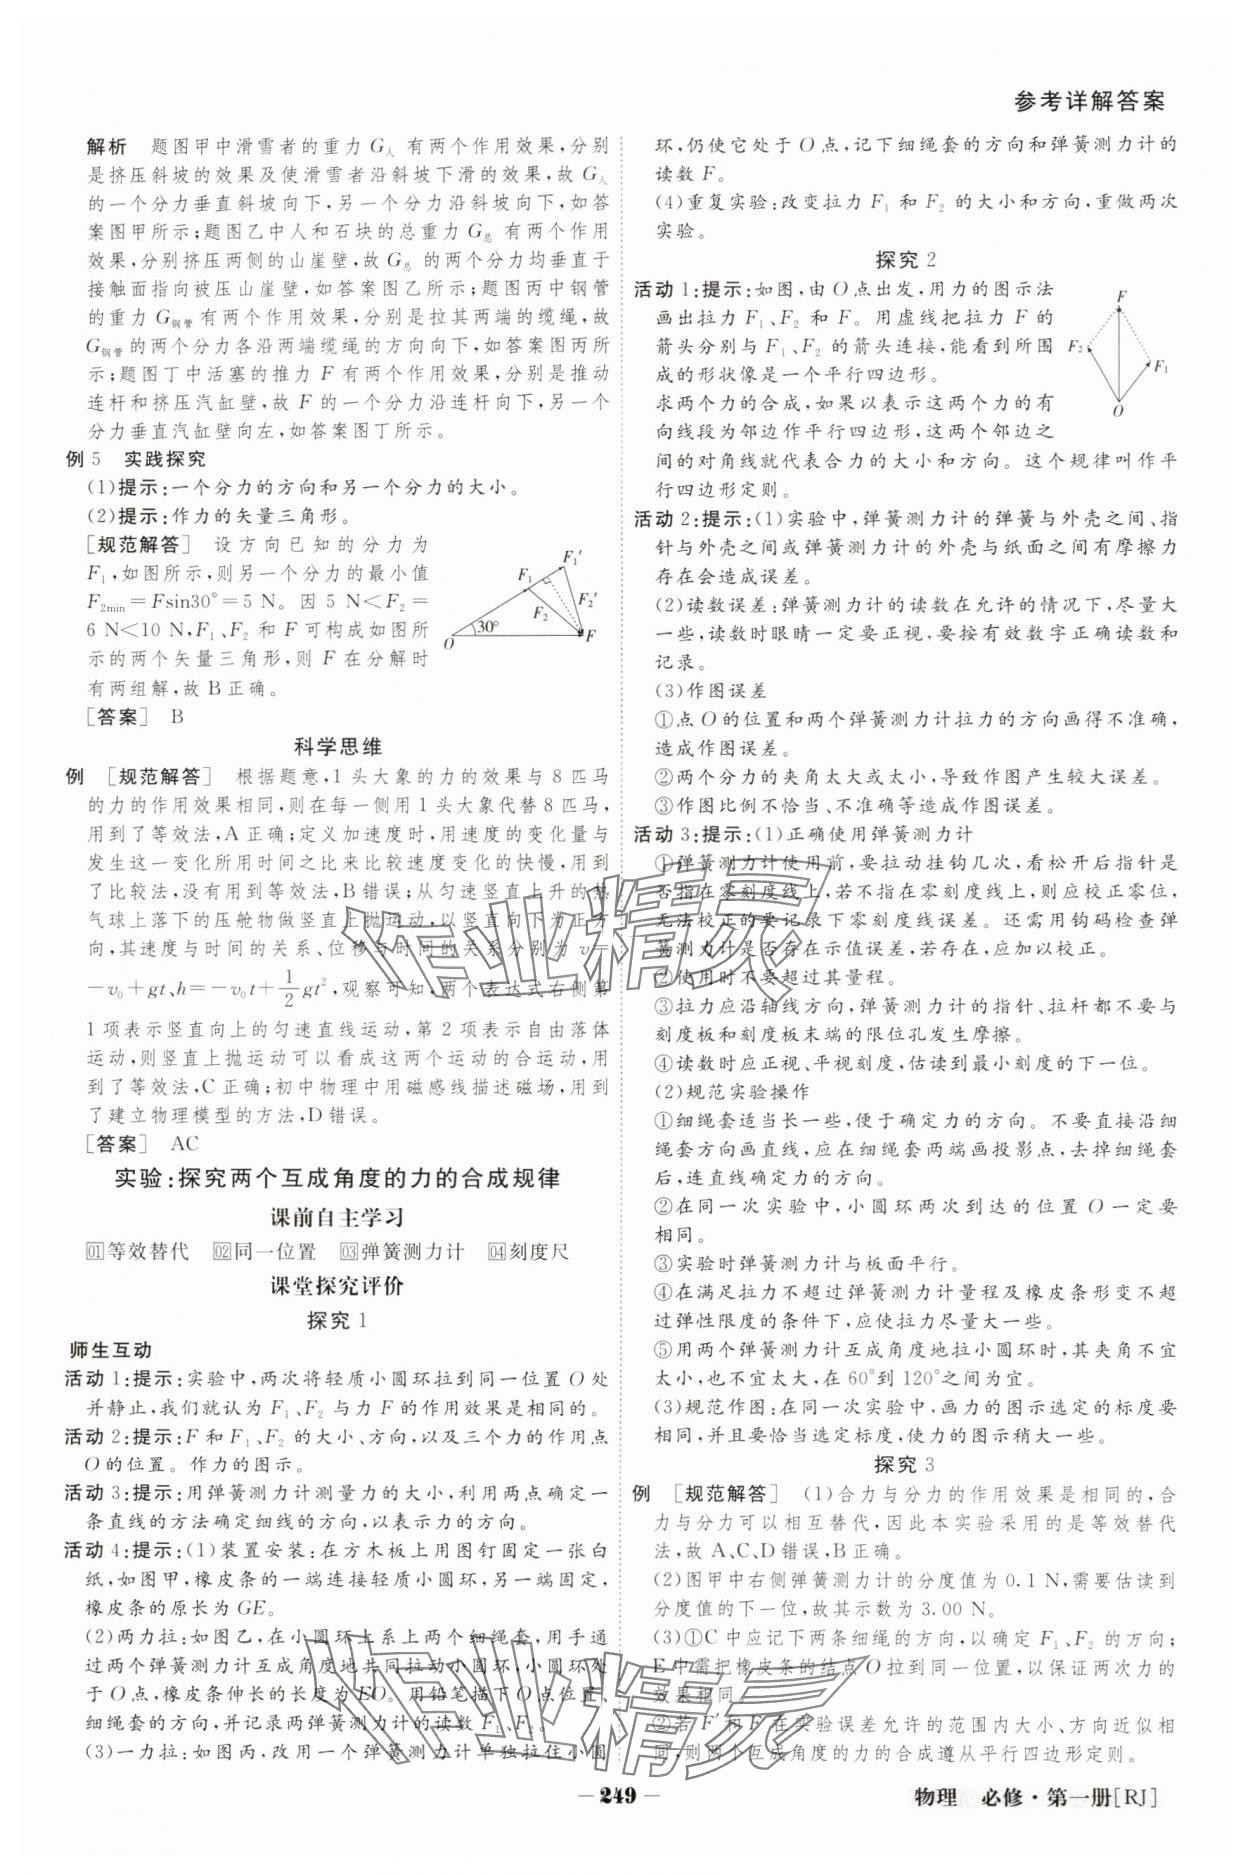 参考详解答案
解析　题图甲中滑雪者的重力 G人 有两个作用效果,分别
是挤压斜坡的效果及使滑雪者沿斜坡下滑的效果,故 G人
的一个分力垂直斜坡向下,另一个分力沿斜坡向下,如答
案图甲所示;题图乙中人和石块的总重力 G总 有两个作用
效果,分别挤压两侧的山崖壁,故 G总 的两个分力均垂直于
接触面指向被压山崖壁,如答案图乙所示;题图丙中钢管
的重力 G钢管 有两个作用效果,分别是拉其两端的缆绳,故
G钢管 的两个分力各沿两端缆绳的方向向下,如答案图丙所
示;题图丁中活塞的推力 F 有两个作用效果,分别是推动
连杆和挤压汽缸壁,故 F 的一个分力沿连杆向下,另一个
分力垂直汽缸壁向左,如答案图丁所示。
例 5　实践探究
(1)提示:一个分力的方向和另一个分力的大小。
(2)提示:作力的矢量三角形。
[规范解答]　设方向已知的分力为
F₁,如图所示,则另一个分力的最小值
F₂min=Fsin30°=5 N。因 5 N<F₂=
6 N<10 N,F₁、F₂ 和 F 可构成如图所
示的两个矢量三角形,则 F 在分解时
有两组解,故 B 正确。
F₁′
F₁
F₂′
F₂
30°
O
F
[答案]　B
科学思维
例　[规范解答]　根据题意,1 头大象的力的效果与 8 匹马
的力的作用效果相同,则在每一侧用 1 头大象代替 8 匹马,
用到了等效法,A 正确;定义加速度时,用速度的变化量与
发生这一变化所用时间之比来比较速度变化的快慢,用到
了比较法,没有用到等效法,B 错误;从匀速竖直上升的热
气球上落下的压舱物做竖直上抛运动,以竖直向下为正方
向,其速度与时间的关系、位移与时间的关系分别为 v=
-v₀+gt、h=-v₀t+1/2gt²,观察可知,两个表达式右侧第
1 项表示竖直向上的匀速直线运动,第 2 项表示自由落体
运动,则竖直上抛运动可以看成这两个运动的合运动,用
到了等效法,C 正确;初中物理中用磁感线描述磁场,用到
了建立物理模型的方法,D 错误。
[答案]　AC
实验:探究两个互成角度的力的合成规律
课前自主学习
01等效替代　02同一位置　03弹簧测力计　04刻度尺
课堂探究评价
探究 1
师生互动
活动 1:提示:实验中,两次将轻质小圆环拉到同一位置 O 处
并静止,我们就认为 F₁、F₂ 与力 F 的作用效果是相同的。
活动 2:提示:F 和 F₁、F₂ 的大小、方向,以及三个力的作用点
O 的位置。作力的图示。
活动 3:提示:用弹簧测力计测量力的大小,利用两点确定一
条直线的方法确定细线的方向,以表示力的方向。
活动 4:提示:(1)装置安装:在方木板上用图钉固定一张白
纸,如图甲,橡皮条的一端连接轻质小圆环,另一端固定,
橡皮条的原长为 GE。
(2)两力拉:如图乙,在小圆环上系上两个细绳套,用手通
过两个弹簧测力计互成角度地共同拉动小圆环,小圆环处
于 O 点,橡皮条伸长的长度为 EO。用铅笔描下 O 点位置、
细绳套的方向,并记录两弹簧测力计的读数 F₁、F₂。
(3)一力拉:如图丙,改用一个弹簧测力计单独拉住小圆
环,仍使它处于 O 点,记下细绳套的方向和弹簧测力计的
读数 F。
(4)重复实验:改变拉力 F₁ 和 F₂ 的大小和方向,重做两次
实验。
探究 2
活动 1:提示:如图,由 O 点出发,用力的图示法
画出拉力 F₁、F₂ 和 F。用虚线把拉力 F 的
箭头分别与 F₁、F₂ 的箭头连接,能看到所围
成的形状像是一个平行四边形。
求两个力的合成,如果以表示这两个力的有
向线段为邻边作平行四边形,这两个邻边之
间的对角线就代表合力的大小和方向。这个规律叫作平
行四边形定则。
F
F₂
F₁
O
活动 2:提示:(1)实验中,弹簧测力计的弹簧与外壳之间、指
针与外壳之间或弹簧测力计的外壳与纸面之间有摩擦力
存在会造成误差。
(2)读数误差:弹簧测力计的读数在允许的情况下,尽量大
一些,读数时眼睛一定要正视,要按有效数字正确读数和
记录。
(3)作图误差
①点 O 的位置和两个弹簧测力计拉力的方向画得不准确,
造成作图误差。
②两个分力的夹角太大或太小,导致作图产生较大误差。
③作图比例不恰当、不准确等造成作图误差。
活动 3:提示:(1)正确使用弹簧测力计
①弹簧测力计使用前,要拉动挂钩几次,看松开后指针是
否指在零刻度线上,若不指在零刻度线上,则应校正零位,
无法校正的要记录下零刻度线误差。还需用钩码检查弹
簧测力计是否存在示值误差,若存在,应加以校正。
②使用时不能超过其量程。
③拉力应沿轴线方向,弹簧测力计的指针、拉杆都不要与
刻度板和刻度板末端的限位孔发生摩擦。
④读数时应正视、平视刻度,估读到最小刻度的下一位。
(2)规范实验操作
①细绳套适当长一些,便于确定力的方向。不要直接沿细
绳套方向画直线,应在细绳套两端画投影点,去掉细绳套
后,连直线确定力的方向。
②在同一次实验中,小圆环两次到达的位置 O 一定要
相同。
③实验时弹簧测力计与板面平行。
④在满足拉力不超过弹簧测力计量程及橡皮条形变不超
过弹性限度的条件下,应使拉力尽量大一些。
⑤用两个弹簧测力计互成角度地拉小圆环时,其夹角不宜
太小,也不宜太大,在 60°到 120°之间为宜。
(3)规范作图:在同一次实验中,画力的图示选定的标度要
相同,并且要恰当选定标度,使力的图示稍大一些。
探究 3
例　[规范解答]　(1)合力与分力的作用效果是相同的,合
力与分力可以相互替代,因此本实验采用的是等效替代
法,故 A、C、D 错误,B 正确。
(2)图甲中右侧弹簧测力计的分度值为 0.1 N,需要估读到
分度值的下一位,故其示数为 3.00 N。
(3)①C 中应记下两条细绳的方向,以确定 F₁、F₂ 的方向;
E 中需把橡皮条的结点 O 拉到同一位置,以保证两次力的
效果相同。
②若 F′ 和 F 在实验误差允许的范围内大小、方向近似相
同,则两个互成角度的力的合成遵从平行四边形定则。
作业精灵
作业精灵
— 249 —
物理　必修·第一册[RJ]